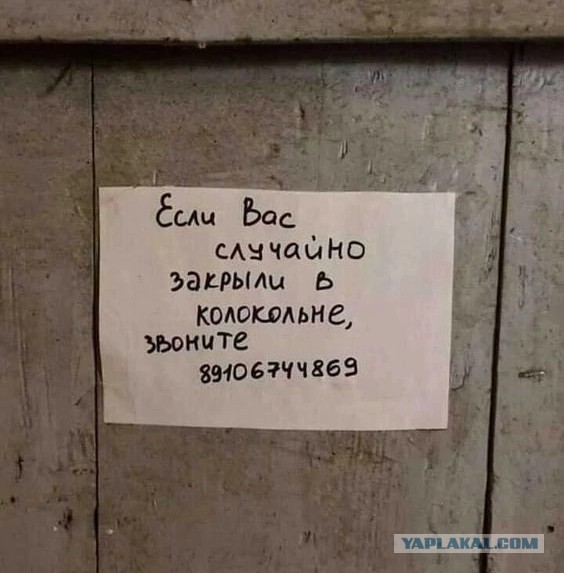 Если Вас
случайно
закрыли в
колокольне,
звоните
89106744869
YAPLAKAL.COM